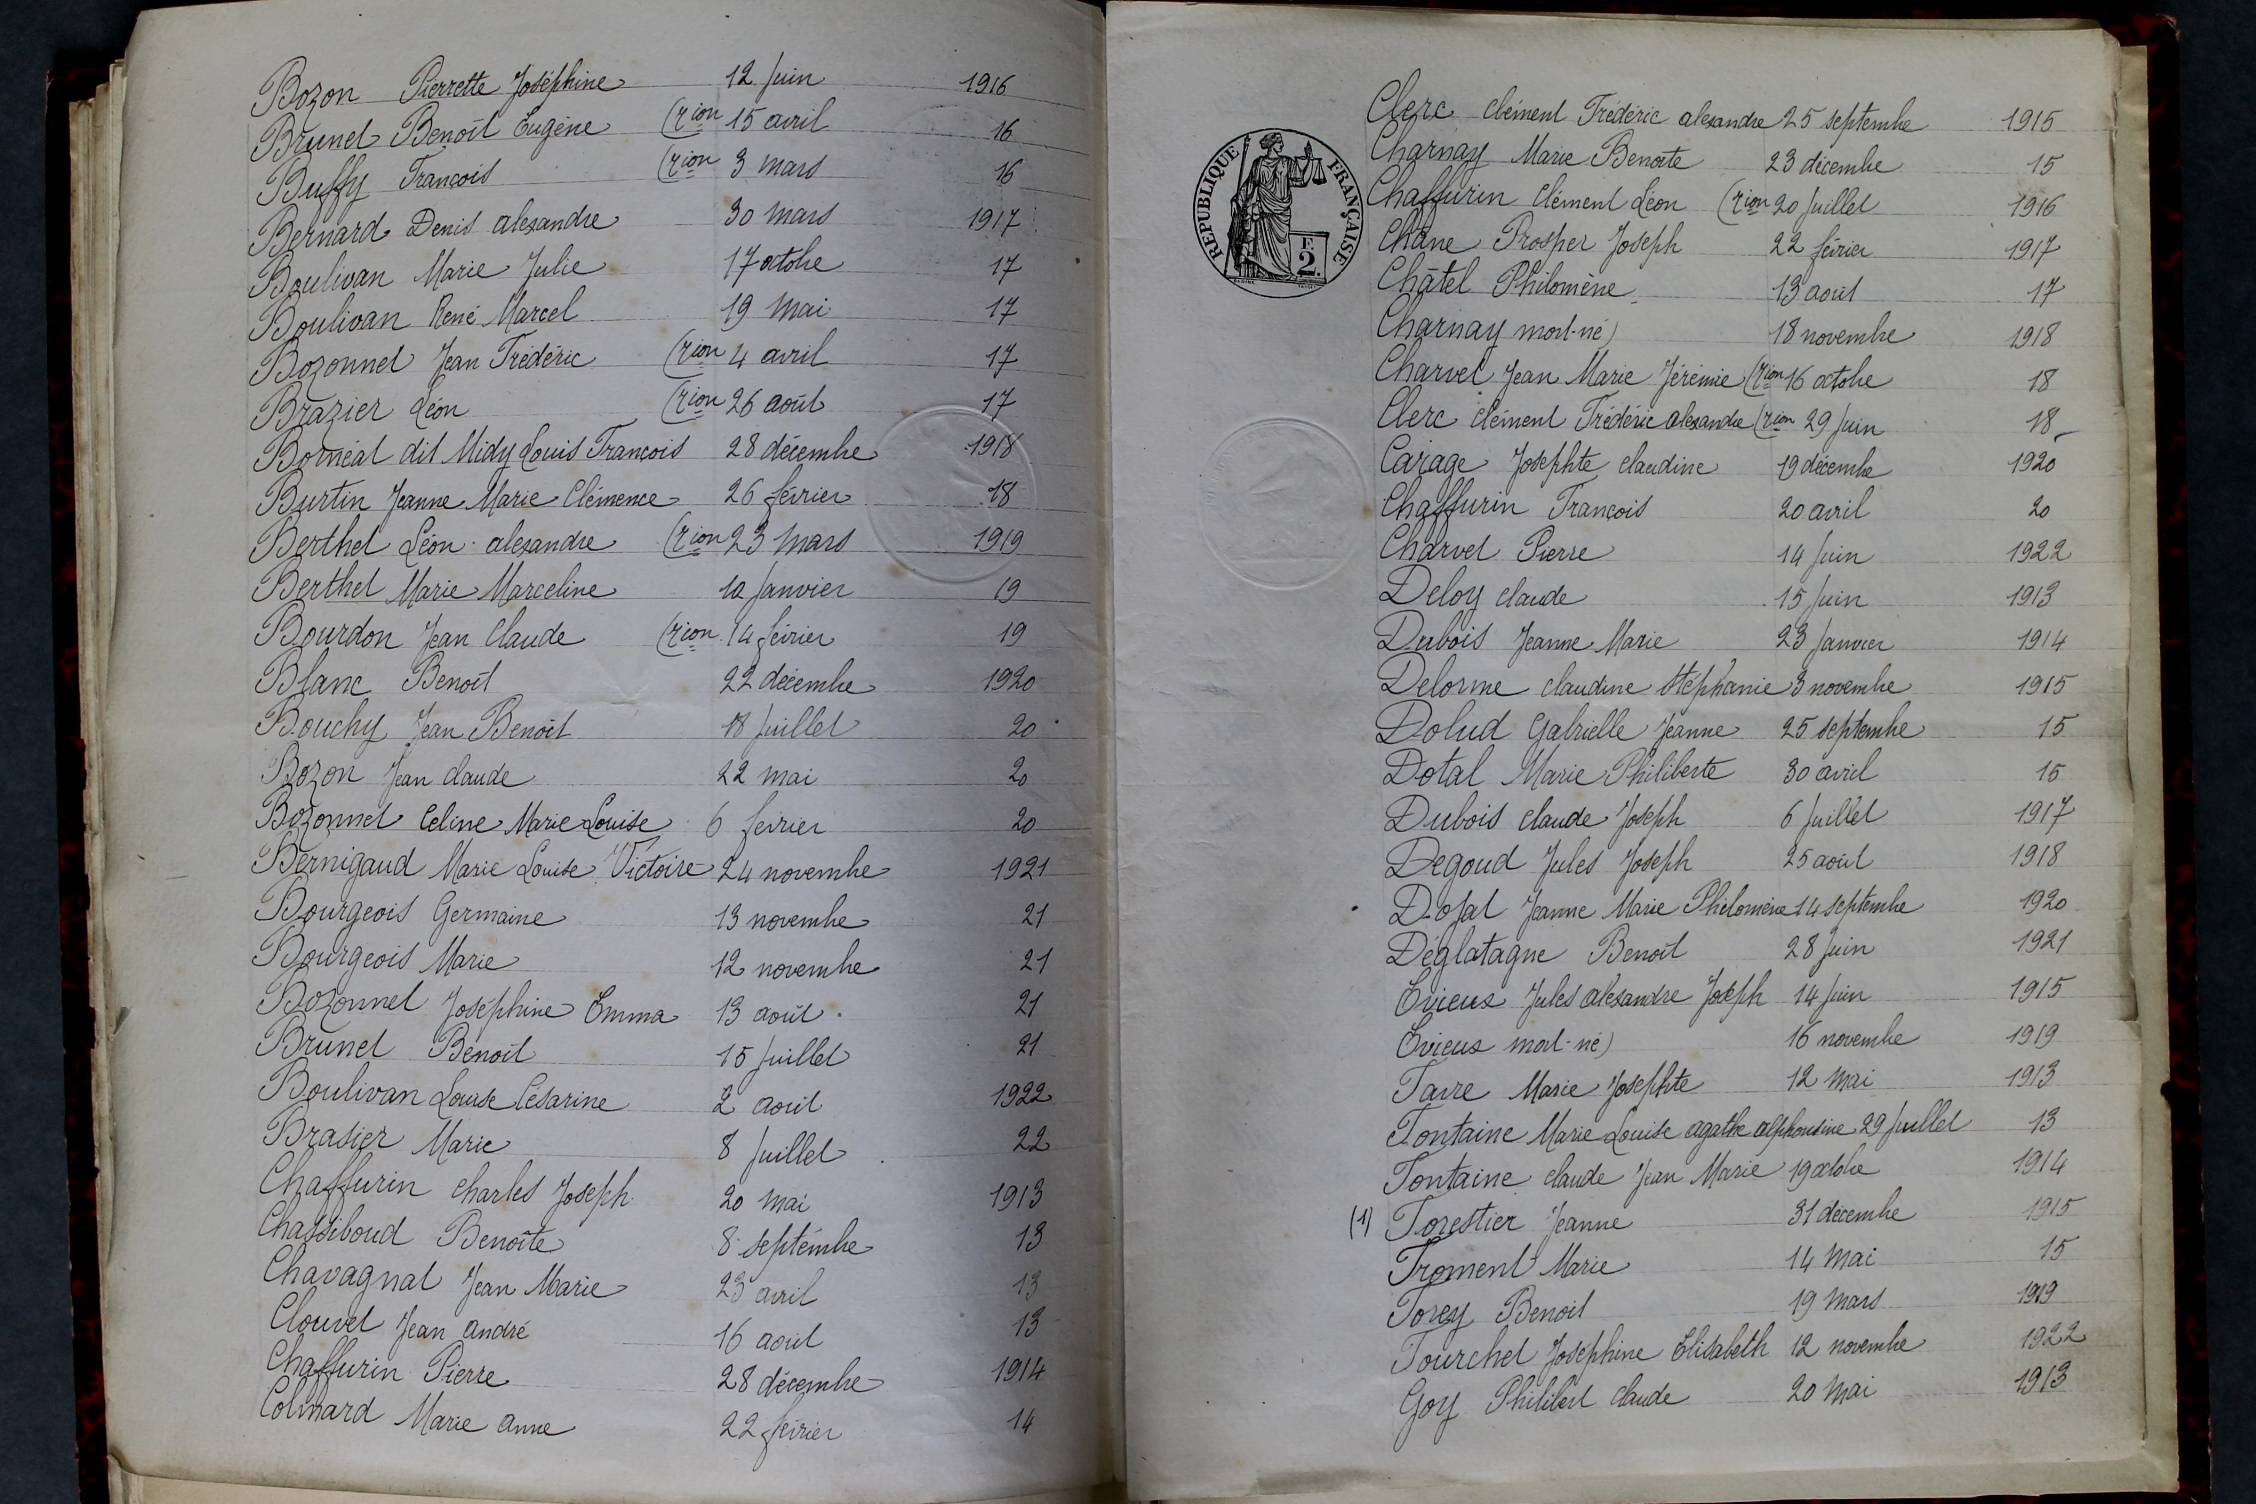 Bozon Pierrette Joséphine 12 Juin 1916
Brunet Benoît Eugène (rion 15 avril 16
Buffy François (rion 3 mars 16
Bernard Denis alexandre 30 mars 1917
Boulivan Marie Julie 17 octobre 17
Boulivan René Marcel 19 Mai 17
Bozonnet Jean Frédéric (rion 4 avril 17
Brazier Léon (rion 26 août 17
Bornéat dit Midy Louis François 28 décembre 1918
Burtin Jeanne Marie Clémence 26 février 18
Berthet Léon alexandre (rion 23 Mars 1919
Berthet Marie Marceline 10 Janvier 19
Bourdon Jean Claude (rion 14 février 19
Blanc Benoît 22 décembre 1920
Bouchy Jean Benoît 18 Juillet 20
Bozon Jean claude 22 mai 20
Bozonnet Celine Marie Louise 6 fevrier 20
Bernigaud Marie Louise Victoire 24 novembre 1921
Bourgeois Germaine 13 novembre 21
Bourgeois Marie 12 novembre 21
Bozonnet Joséphine Emma 13 août 21
Brunet Benoît 15 Juillet 21
Boulivan Louise Césarine 2 août 1922
Brasier Marie 8 Juillet 22
Chaffurin charles Joseph 20 Mai 1913
Chassiboud Benoîte 8 septembre 13
Chavagnat Jean Marie 23 avril 13
Clouvet Jean andré 16 août 13
Chaffurin Pierre 28 décembre 1914
Colinard Marie anne 22 février 14
RÉPUBLIQUE FRANÇAISE
F.
2.
Clerc clément Frédéric alexandre 25 septembre 1915
Charnay Marie Benoîte 23 décembre 15
Chaffurin Clément Léon (rion 20 Juillet 1916
Châne Prosper Joseph 22 février 1917
Châtel Philomène 13 août 17
Charnay mort-né) 18 novembre 1918
Charvet Jean Marie Jérémie (rion 16 octobre 18
Clerc clément Frédéric alexandre (rion 29 Juin 18
Carage Josephte claudine 19 décembre 1920
Chaffurin François 20 avril 20
Charvet Pierre 14 Juin 1922
Deloy claude 15 Juin 1913
Dubois Jeanne Marie 23 Janvier 1914
Delorme claudine Stéphanie 3 novembre 1915
Dolud Gabrielle Jeanne 25 septembre 15
Dotal Marie Philiberte 30 avril 15
Dubois claude Joseph 6 Juillet 1917
Degoud Jules Joseph 25 août 1918
Dojat Jeanne Marie Philomène 14 septembre 1920
Déglatagne Benoît 28 Juin 1921
Evieux Jules alexandre Joseph 14 Juin 1915
Evieux mort-né) 16 novembre 1919
Favre Marie Josephte 12 Mai 1913
Fontaine Marie Louise agathe alphonsine 29 Juillet 13
Fontaine claude Jean Marie 19 octobre 1914
(1) Forestier Jeanne 31 décembre 1915
Froment Marie 14 Mai 15
Forey Benoit 19 Mars 1919
Fourchet Joséphine Elisabeth 12 novembre 1922
Goy Philibert claude 20 Mai 1913